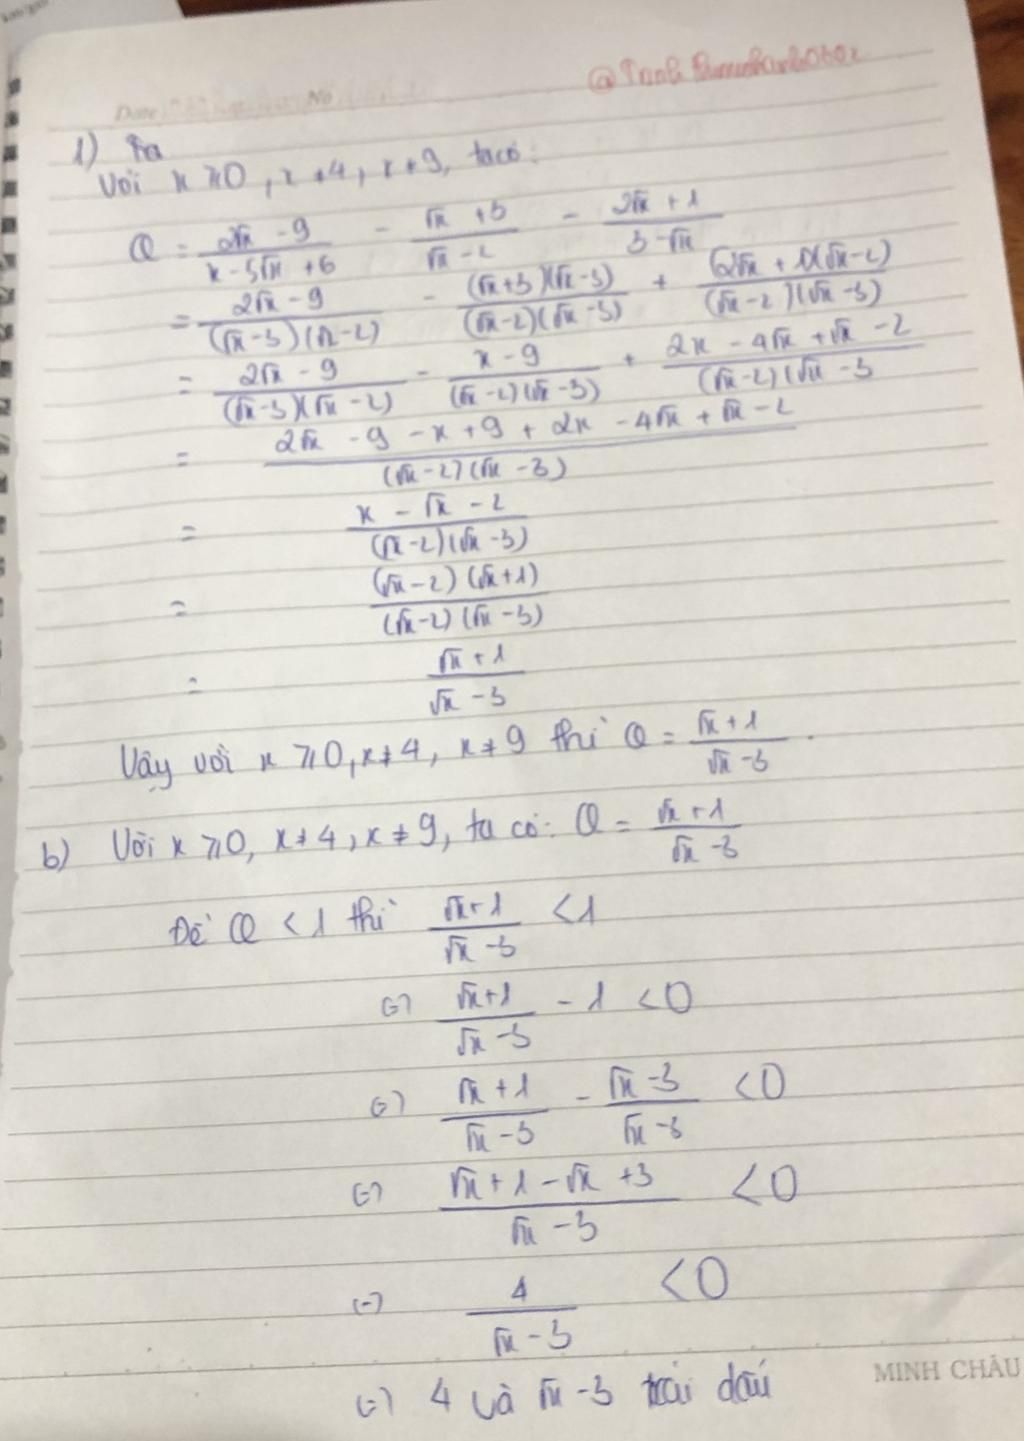 Date No
1) Ra
Với x ≥ 0, x ≠ 4, x ≠ 9, ta có:
Q = (2√x - 9)/(x - 5√x + 6) - (√x + 3)/(√x - 2) - (2√x + 1)/(3 - √x)
= (2√x - 9)/((√x - 3)(√x - 2)) - ((√x + 3)(√x - 3))/((√x - 2)(√x - 3)) + ((2√x + 1)(√x - 2))/((√x - 2)(√x - 3))
= (2√x - 9)/((√x - 3)(√x - 2)) - (x - 9)/((√x - 2)(√x - 3)) + (2x - 4√x + √x - 2)/((√x - 2)(√x - 3
= (2√x - 9 - x + 9 + 2x - 4√x + √x - 2)/((√x - 2)(√x - 3))
= (x - √x - 2)/((√x - 2)(√x - 3))
= ((√x - 2)(√x + 1))/((√x - 2)(√x - 3))
= (√x + 1)/(√x - 3)
Vậy với x ≥ 0, x ≠ 4, x ≠ 9 thì Q = (√x + 1)/(√x - 3).
b) Với x ≥ 0, x ≠ 4, x ≠ 9, ta có: Q = (√x + 1)/(√x - 3)
Để Q < 1 thì (√x + 1)/(√x - 3) < 1
(=) (√x + 1)/(√x - 3) - 1 < 0
(=) (√x + 1)/(√x - 3) - (√x - 3)/(√x - 3) < 0
(=) (√x + 1 - √x + 3)/(√x - 3) < 0
(=) 4/(√x - 3) < 0
(=) 4 và √x - 3 trái dấu
MINH CHÂU